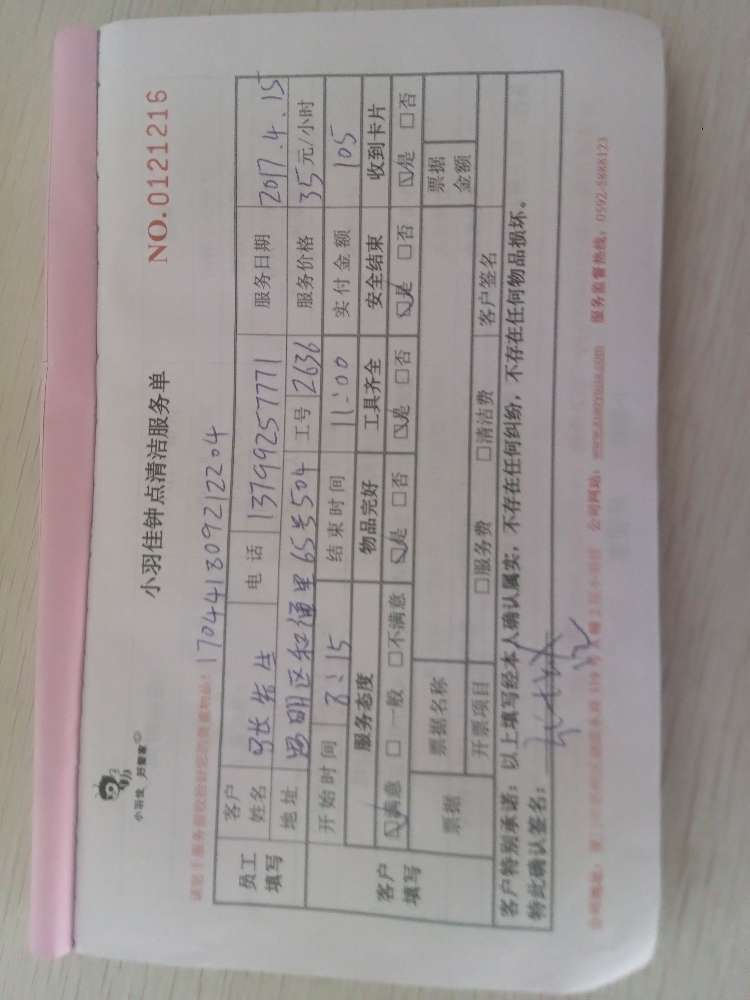 小羽佳 好管家
小羽佳钟点清洁服务单
NO.0121216
170441809212204
员工填写
客户姓名 张先生 电话 13799257771 服务日期 2017.4.15
地址 思明区和通里65号504 工号 2636 服务价格 35元/小时
开始时间 8:15 结束时间 11:00 实付金额 105
客户填写
服务态度 物品完好 工具齐全 安全结束 收到卡片
☑满意 □一般 □不满意 ☑是 □否 ☑是 □否 ☑是 □否 ☑是 □否
票据 票据名称 票据金额
开票项目 □服务费 □清洁费 客户签名
客户特别承诺:以上填写经本人确认属实,不存在任何纠纷,不存在任何物品损坏。
特此确认签名:
公司地址: 公司网站: 服务监督热线:0592-5888123